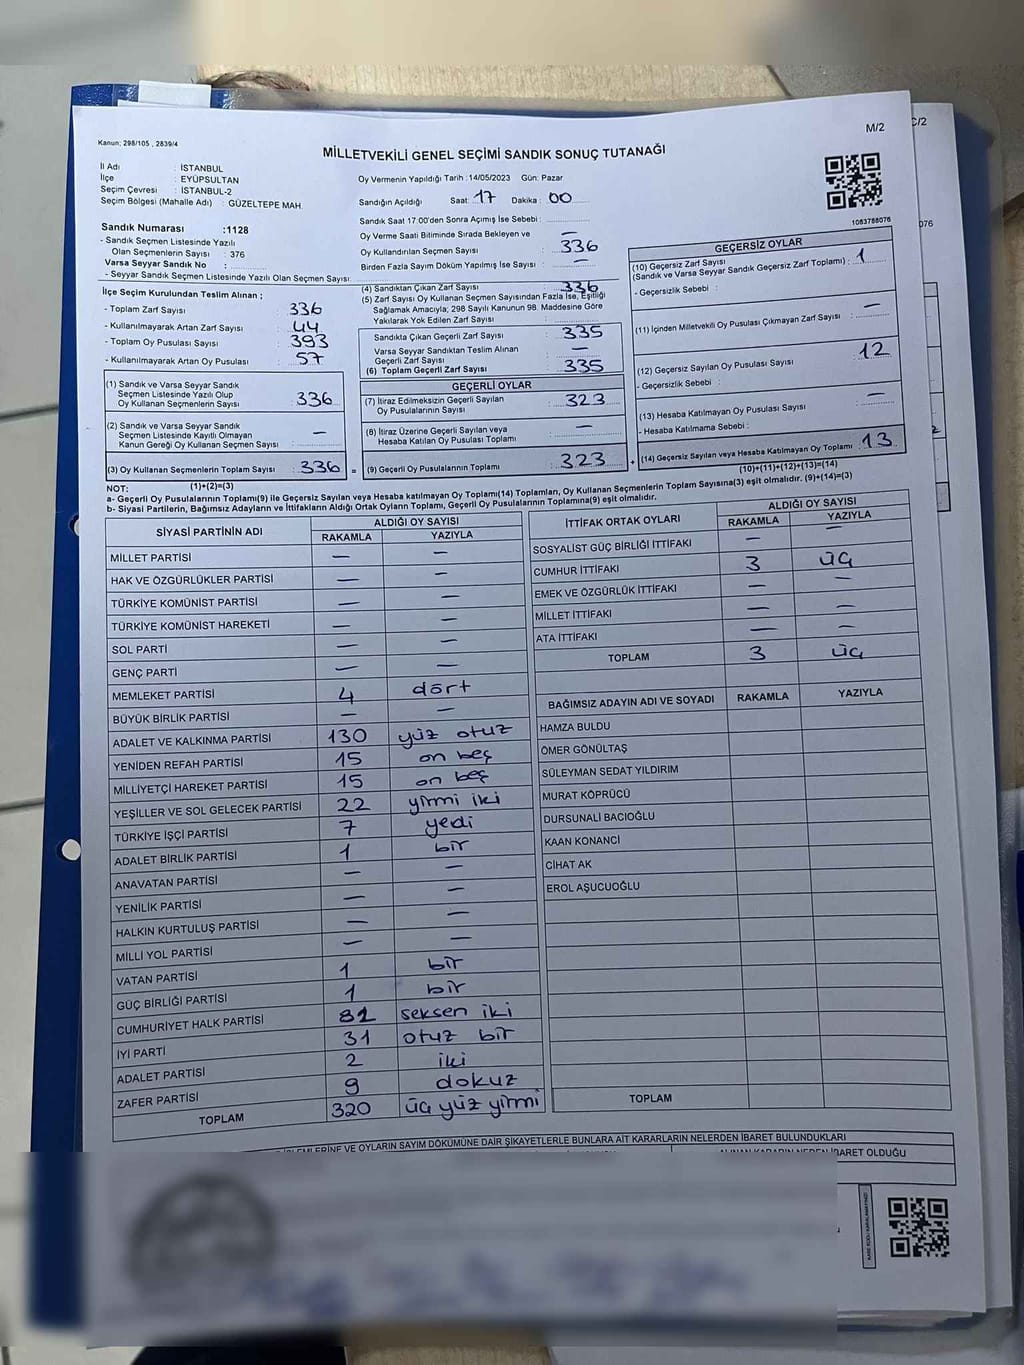 M/2
C/2
Kanun; 298/105 , 2839/4
MİLLETVEKİLİ GENEL SEÇİMİ SANDIK SONUÇ TUTANAĞI
İl Adı : İSTANBUL
İlçe : EYÜPSULTAN
Seçim Çevresi : İSTANBUL-2
Seçim Bölgesi (Mahalle Adı) : GÜZELTEPE MAH.
Oy Vermenin Yapıldığı Tarih :14/05/2023 Gün: Pazar
Sandığın Açıldığı Saat: 17 Dakika: 00
Sandık Saat 17:00'den Sonra Açımış İse Sebebi :
Oy Verme Saati Bitiminde Sırada Bekleyen ve
Oy Kullandırılan Seçmen Sayısı 336
Birden Fazla Sayım Döküm Yapılmış İse Sayısı : —
1063788076
076
Sandık Numarası :1128
- Sandık Seçmen Listesinde Yazılı
Olan Seçmenlerin Sayısı : 376
Varsa Seyyar Sandık No :
- Seyyar Sandık Seçmen Listesinde Yazılı Olan Seçmen Sayısı:
İlçe Seçim Kurulundan Teslim Alınan ;
- Toplam Zarf Sayısı 336
- Kullanılmayarak Artan Zarf Sayısı : 44
- Toplam Oy Pusulası Sayısı : 393
- Kullanılmayarak Artan Oy Pusulası : 57
(1) Sandık ve Varsa Seyyar Sandık
Seçmen Listesinde Yazılı Olup
Oy Kullanan Seçmenlerin Sayısı : 336
(2) Sandık ve Varsa Seyyar Sandık
Seçmen Listesinde Kayıtlı Olmayan
Kanun Gereği Oy Kullanan Seçmen Sayısı : —
(3) Oy Kullanan Seçmenlerin Toplam Sayısı : 336 =
(1)+(2)=(3)
(4) Sandıktan Çıkan Zarf Sayısı : 336
(5) Zarf Sayısı Oy Kullanan Seçmen Sayısından Fazla İse, Eşitliği
Sağlamak Amacıyla; 298 Sayılı Kanunun 98. Maddesine Göre
Yakılarak Yok Edilen Zarf Sayısı :
Sandıkta Çıkan Geçerli Zarf Sayısı : 335
Varsa Seyyar Sandıktan Teslim Alınan
Geçerli Zarf Sayısı : —
(6) Toplam Geçerli Zarf Sayısı : 335
GEÇERLİ OYLAR
(7) İtiraz Edilmeksizin Geçerli Sayılan
Oy Pusulalarının Sayısı : 323
(8) İtiraz Üzerine Geçerli Sayılan veya
Hesaba Katılan Oy Pusulası Toplamı : —
(9) Geçerli Oy Pusulalarının Toplamı : 323 +
GEÇERSİZ OYLAR
(10) Geçersiz Zarf Sayısı
(Sandık ve Varsa Seyyar Sandık Geçersiz Zarf Toplamı) : 1
- Geçersizlik Sebebi :
(11) İçinden Milletvekili Oy Pusulası Çıkmayan Zarf Sayısı : —
(12) Geçersiz Sayılan Oy Pusulası Sayısı : 12
- Geçersizlik Sebebi :
(13) Hesaba Katılmayan Oy Pusulası Sayısı : —
- Hesaba Katılmama Sebebi :
(14) Geçersiz Sayılan veya Hesaba Katılmayan Oy Toplamı : 13
(10)+(11)+(12)+(13)=(14)
NOT:
a- Geçerli Oy Pusulalarının Toplamı(9) ile Geçersiz Sayılan veya Hesaba katılmayan Oy Toplamı(14) Toplamları, Oy Kullanan Seçmenlerin Toplam Sayısına(3) eşit olmalıdır. (9)+(14)=(3)
b- Siyasi Partilerin, Bağımsız Adayların ve İttifakların Aldığı Ortak Oyların Toplamı, Geçerli Oy Pusulalarının Toplamına(9) eşit olmalıdır.
SİYASİ PARTİNİN ADI ALDIĞI OY SAYISI
RAKAMLA YAZIYLA
MİLLET PARTİSİ — —
HAK VE ÖZGÜRLÜKLER PARTİSİ — —
TÜRKİYE KOMÜNİST PARTİSİ — —
TÜRKİYE KOMÜNİST HAREKETİ — —
SOL PARTİ — —
GENÇ PARTİ — —
MEMLEKET PARTİSİ 4 dört
BÜYÜK BİRLİK PARTİSİ — —
ADALET VE KALKINMA PARTİSİ 130 yüz otuz
YENİDEN REFAH PARTİSİ 15 on beş
MİLLİYETÇİ HAREKET PARTİSİ 15 on beş
YEŞİLLER VE SOL GELECEK PARTİSİ 22 yirmi iki
TÜRKİYE İŞÇİ PARTİSİ 7 yedi
ADALET BİRLİK PARTİSİ 1 bir
ANAVATAN PARTİSİ — —
YENİLİK PARTİSİ — —
HALKIN KURTULUŞ PARTİSİ — —
MİLLİ YOL PARTİSİ — —
VATAN PARTİSİ 1 bir
GÜÇ BİRLİĞİ PARTİSİ 1 bir
CUMHURİYET HALK PARTİSİ 82 seksen iki
İYİ PARTİ 31 otuz bir
ADALET PARTİSİ 2 iki
ZAFER PARTİSİ 9 dokuz
TOPLAM 320 üç yüz yirmi
İTTİFAK ORTAK OYLARI ALDIĞI OY SAYISI
RAKAMLA YAZIYLA
SOSYALİST GÜÇ BİRLİĞİ İTTİFAKI — —
CUMHUR İTTİFAKI 3 üç
EMEK VE ÖZGÜRLÜK İTTİFAKI — —
MİLLET İTTİFAKI — —
ATA İTTİFAKI — —
TOPLAM 3 üç
BAĞIMSIZ ADAYIN ADI VE SOYADI RAKAMLA YAZIYLA
HAMZA BULDU
ÖMER GÖNÜLTAŞ
SÜLEYMAN SEDAT YILDIRIM
MURAT KÖPRÜCÜ
DURSUNALİ BACIOĞLU
KAAN KONANCİ
CİHAT AK
EROL AŞUCUOĞLU
TOPLAM
İŞLEMLERİNE VE OYLARIN SAYIM DÖKÜMÜNE DAİR ŞİKAYETLERLE BUNLARA AİT KARARLARIN NELERDEN İBARET BULUNDUKLARI
ALINAN KARARIN NEDEN İBARET OLDUĞU